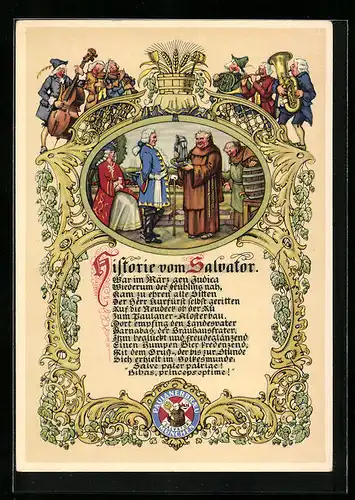 Historie vom Salvator.
War im März gen Judica
Wiederum der Frühling nah,
Kam zu ehren alte Sitten
Der Herr Kurfürst selbst geritten
Auf die Neudeck ob der Au
Zum Paulaner-Klosterbau.
Dort empfing den Landesvater
Barnabas, der Bräuhausfrater,
Ihm beglückt und freudeglänzend
Einen Humpen Bier kredenzend,
Mit dem Gruß, der bis zur Stunde
Sich erhielt im Volksmunde:
"Salve pater patriae!
Bibas, princeps optime!"
PAULANERBRÄU
SALVATOR
MÜNCHEN